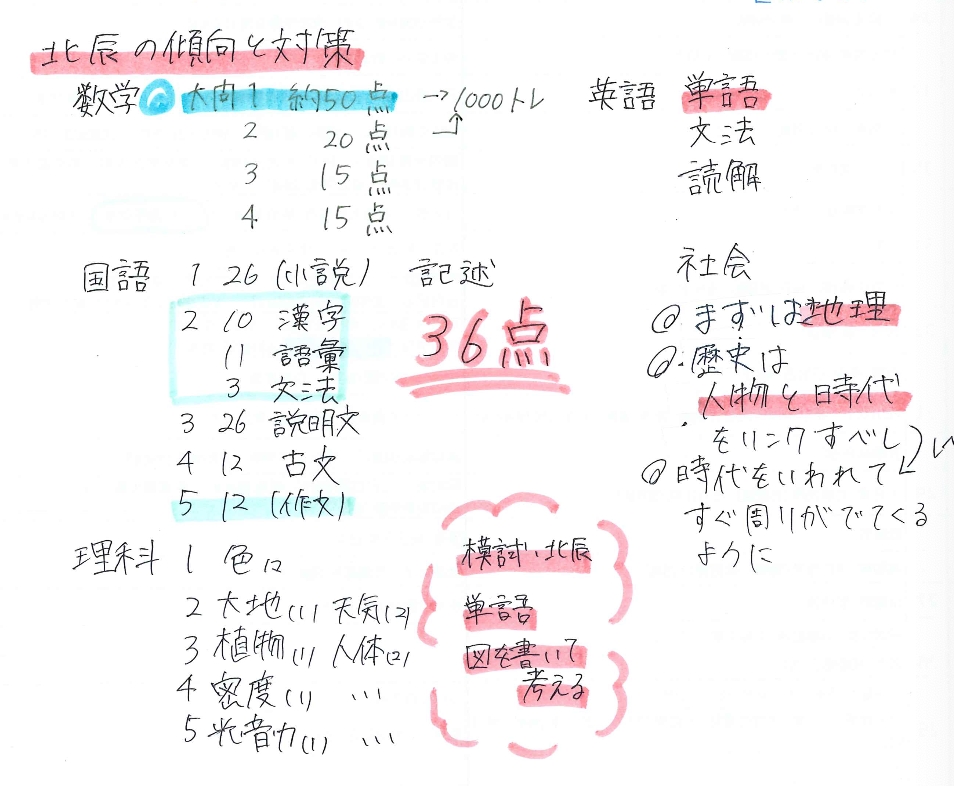 北辰の傾向と対策
数学 大問1 約50点 →1000トレ
2 20点
3 15点
4 15点
英語 単語
文法
読解
国語 1 26 (小説) 記述
36点
2 10 漢字
11 語彙
3 文法
3 26 説明文
4 12 古文
5 12 (作文)
社会
◎まずは地理
◎歴史は
人物と時代
をリンクすべし
◎時代をいわれて
すぐ周りがでてくる
ように
理科 1 色々
2 大地(1) 天気(2)
3 植物(1) 人体(2)
4 密度(1) …
5 光音力(1) …
模試、北辰
単語
図を書いて
考える